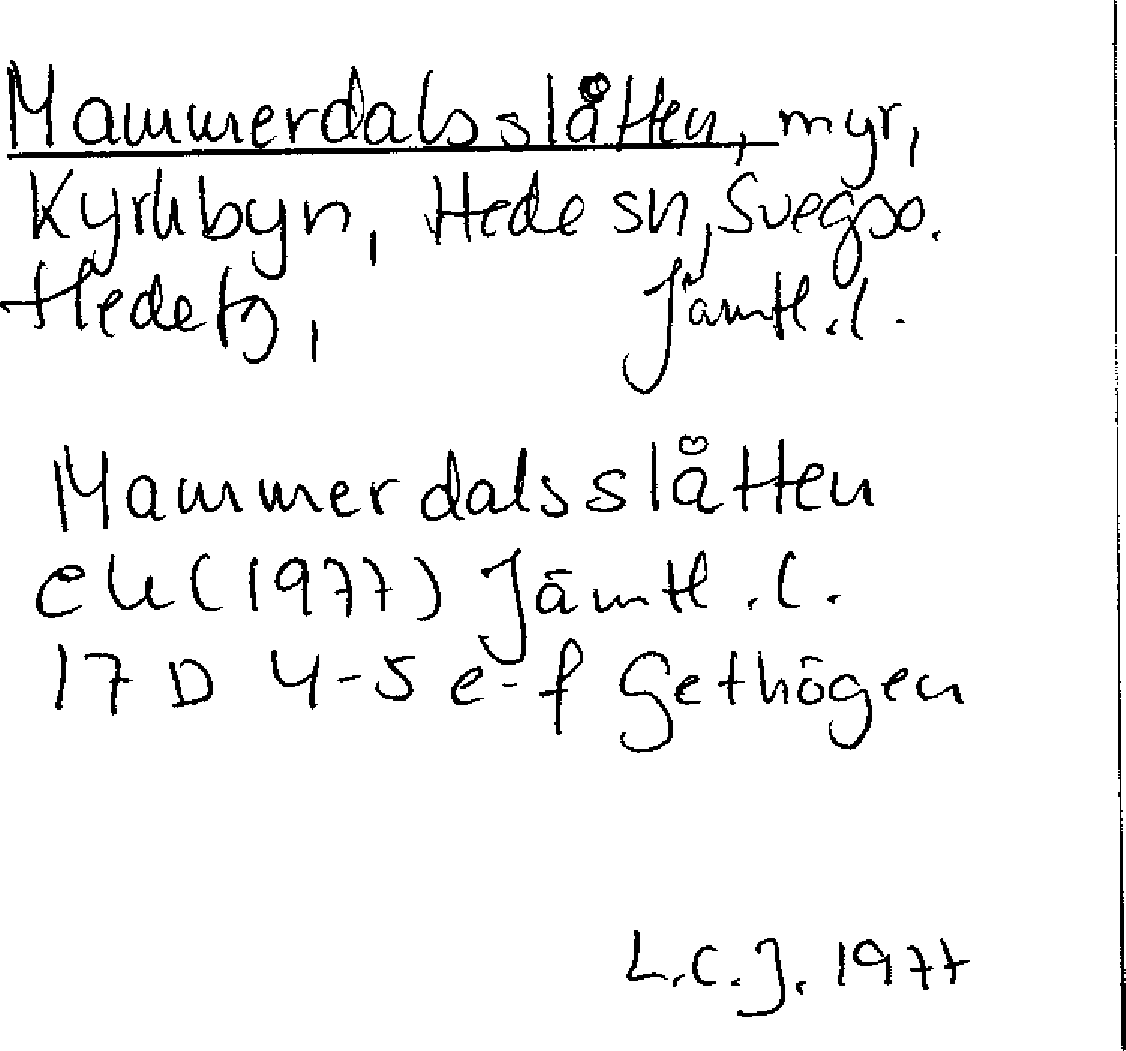 Mammerdalsslåtten, myr,
Kyrkbyn, Hede sn, Svegs so.
Hede tg, Jämtl. l.
Mammerdalsslåtten
ek (1977) Jämtl. l.
17 D 4-5 e-f Gethögen
L.C.J. 1977